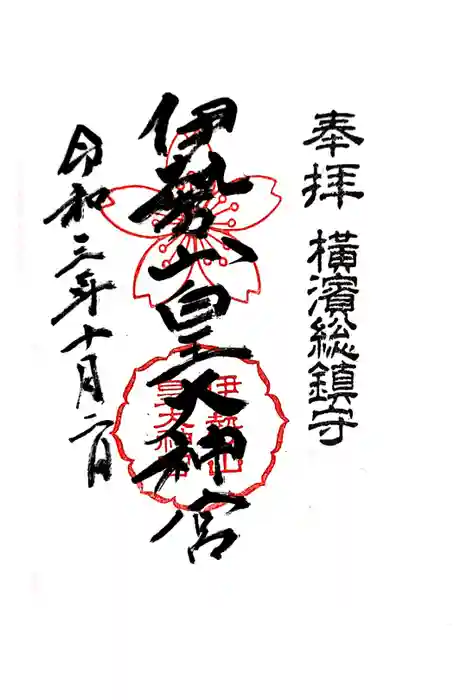 奉拝 横濱総鎮守
伊勢山皇大神宮
伊勢山
皇大神宮
令和三年十月二日